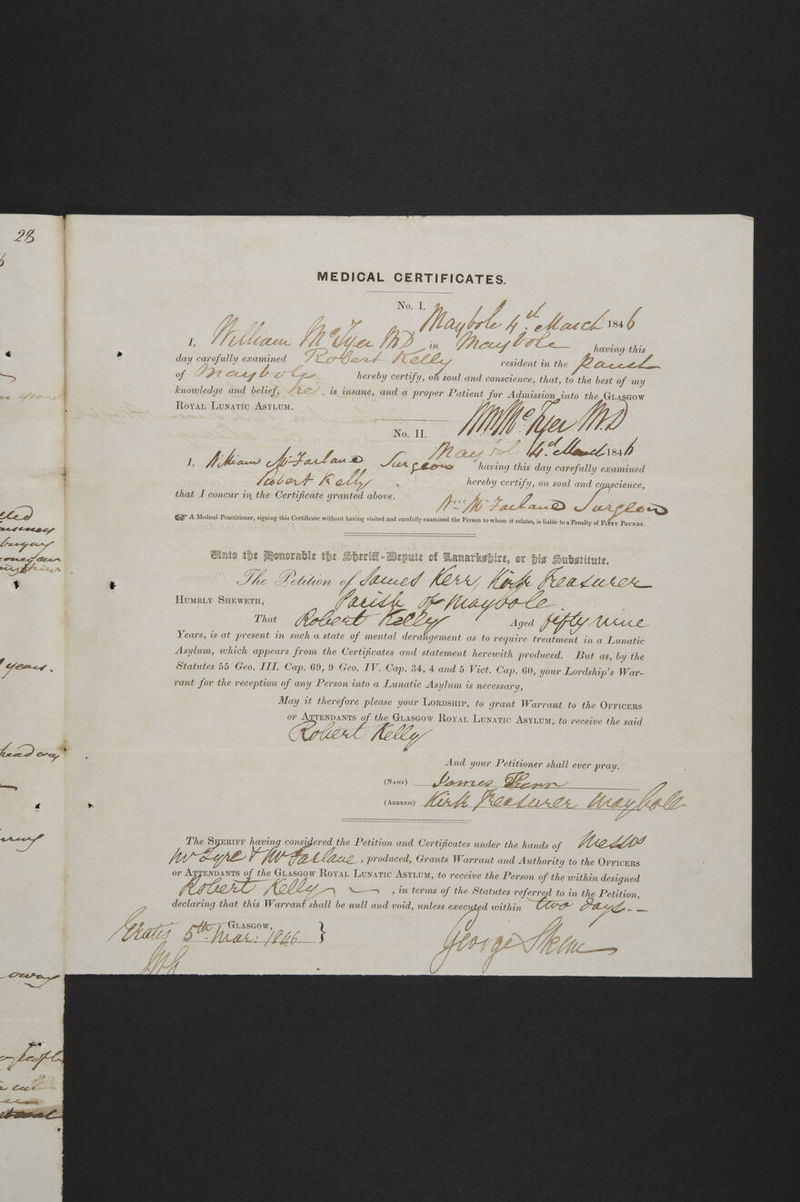 28
MEDICAL CERTIFICATES.
No. I.
Maybole 4th March 1846
I, William McTyer MD in Maybole having this
day carefully examined Robert Kelly resident in the Parish
of Maybole hereby certify, on soul and conscience, that, to the best of my
knowledge and belief, he is insane, and a proper Patient for Admission into the GLASGOW
ROYAL LUNATIC ASYLUM.
Wm McTyer MD
No. II.
Maybole 4th March 1846
I, William McFarlane Surgeon having this day carefully examined
Robert Kelly hereby certify, on soul and conscience,
that I concur in the Certificate granted above.
Wm McFarlane Surgeon
☞ A Medical Practitioner, signing this Certificate without having visited and carefully examined the Person to whom it relates, is liable to a Penalty of FIFTY POUNDS.
Unto the Honorable the Sheriff-Depute of Lanarkshire, or his Substitute.
The Petition of James Kerr, Kirk Treasurer
Parish of Maybole
HUMBLY SHEWETH,
That Robert Kelly Aged fifty nine
Years, is at present in such a state of mental derangement as to require treatment in a Lunatic
Asylum, which appears from the Certificates and statement herewith produced. But as, by the
Statutes 55 Geo. III. Cap. 69, 9 Geo. IV. Cap. 34, 4 and 5 Vict. Cap. 60, your Lordship's War-
rant for the reception of any Person into a Lunatic Asylum is necessary,
May it therefore please your LORDSHIP, to grant Warrant to the OFFICERS
or ATTENDANTS of the GLASGOW ROYAL LUNATIC ASYLUM, to receive the said
Robert Kelly
And your Petitioner shall ever pray.
(NAME) James Kerr
(ADDRESS) Kirk Treasurer Maybole
The SHERIFF having considered the Petition and Certificates under the hands of Messrs
McTyre & McFarlane, produced, Grants Warrant and Authority to the OFFICERS
or ATTENDANTS of the GLASGOW ROYAL LUNATIC ASYLUM, to receive the Person of the within designed
Robert Kelly, in terms of the Statutes referred to in the Petition,
declaring that this Warrant shall be null and void, unless executed within two days.
GLASGOW,
5th Mar: 1846 }
George Skene
years.